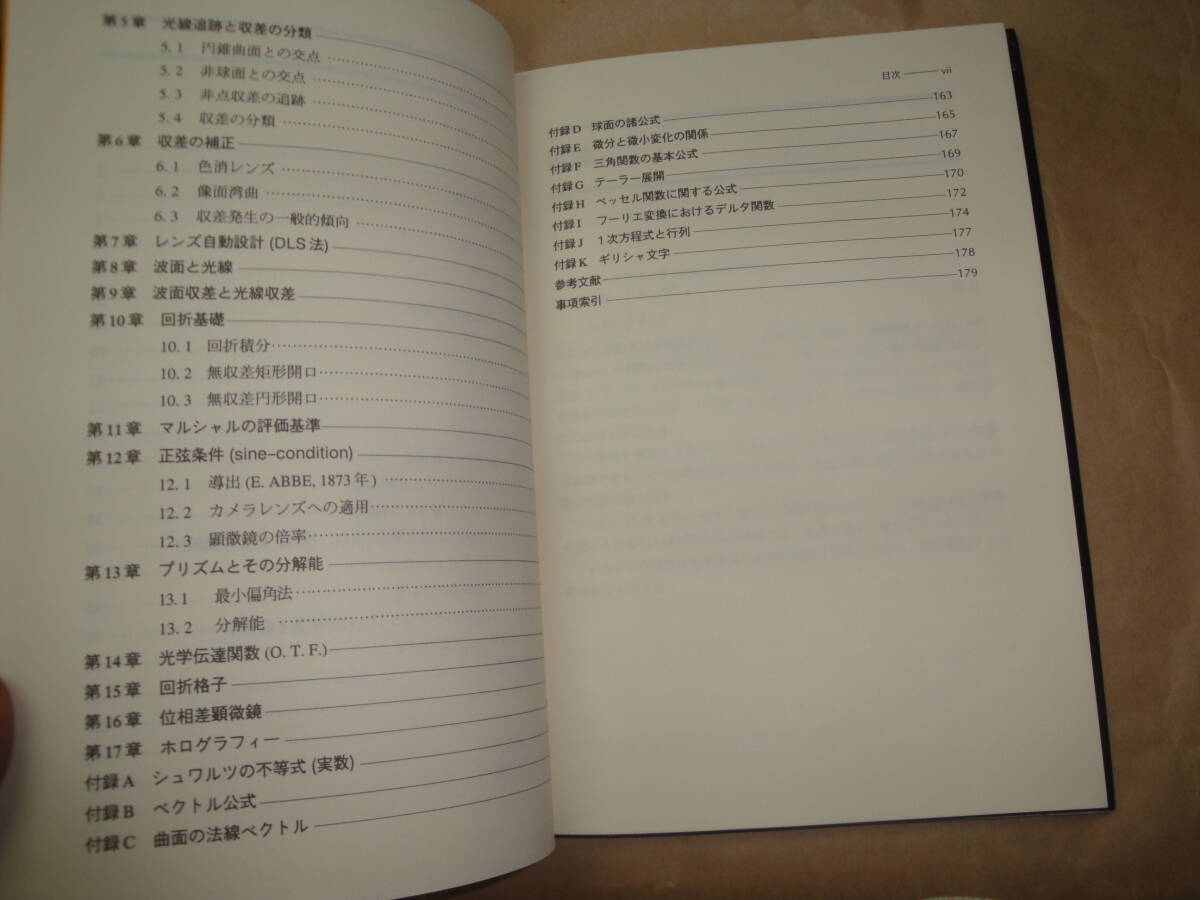 第5章 光線追跡と収差の分類
5.1 円錐曲面との交点
5.2 非球面との交点
5.3 非点収差の追跡
5.4 収差の分類
第6章 収差の補正
6.1 色消レンズ
6.2 像面湾曲
6.3 収差発生の一般的傾向
第7章 レンズ自動設計 (DLS法)
第8章 波面と光線
第9章 波面収差と光線収差
第10章 回折基礎
10.1 回折積分
10.2 無収差矩形開口
10.3 無収差円形開口
第11章 マルシャルの評価基準
第12章 正弦条件 (sine-condition)
12.1 導出 (E. ABBE, 1873年)
12.2 カメラレンズへの適用
12.3 顕微鏡の倍率
第13章 プリズムとその分解能
13.1 最小偏角法
13.2 分解能
第14章 光学伝達関数 (O. T. F.)
第15章 回折格子
第16章 位相差顕微鏡
第17章 ホログラフィー
付録A シュワルツの不等式 (実数)
付録B ベクトル公式
付録C 曲面の法線ベクトル
目次 vii
付録D 球面の諸公式 163
付録E 微分と微小変化の関係 165
付録F 三角関数の基本公式 167
付録G テーラー展開 169
付録H ベッセル関数に関する公式 170
付録I フーリエ変換におけるデルタ関数 172
付録J 1次方程式と行列 174
付録K ギリシャ文字 177
参考文献 178
事項索引 179